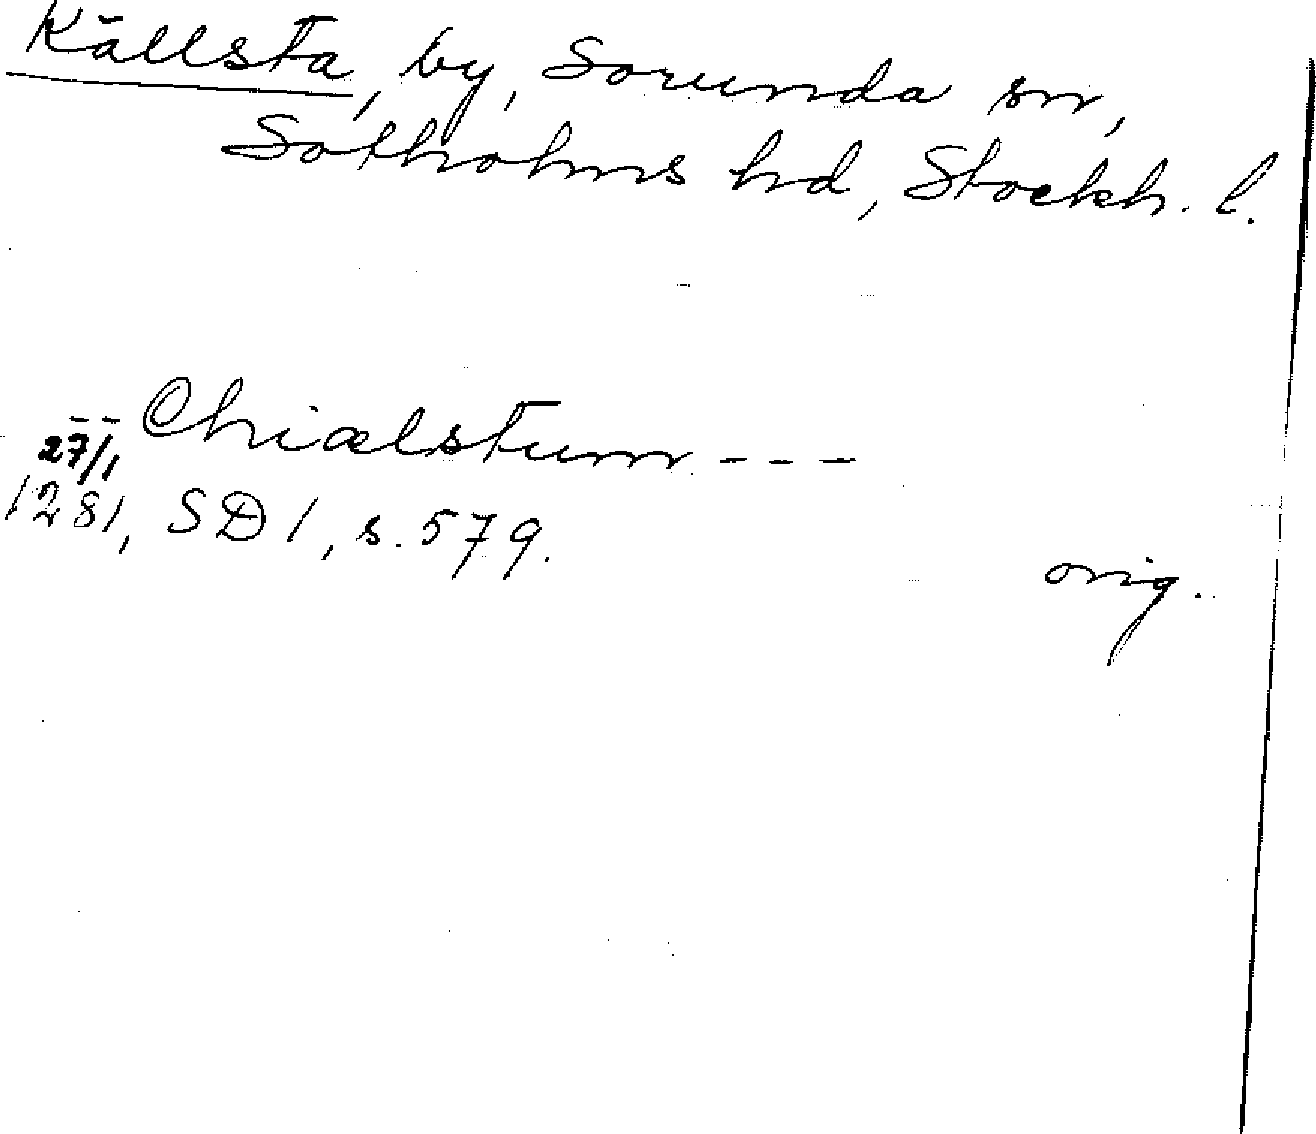 Källsta, by, Sorunda sn,
Sotholms hd, Stockh. l.
-- Chiælstum ---
27/1
1281, SD 1, s. 579.
orig.